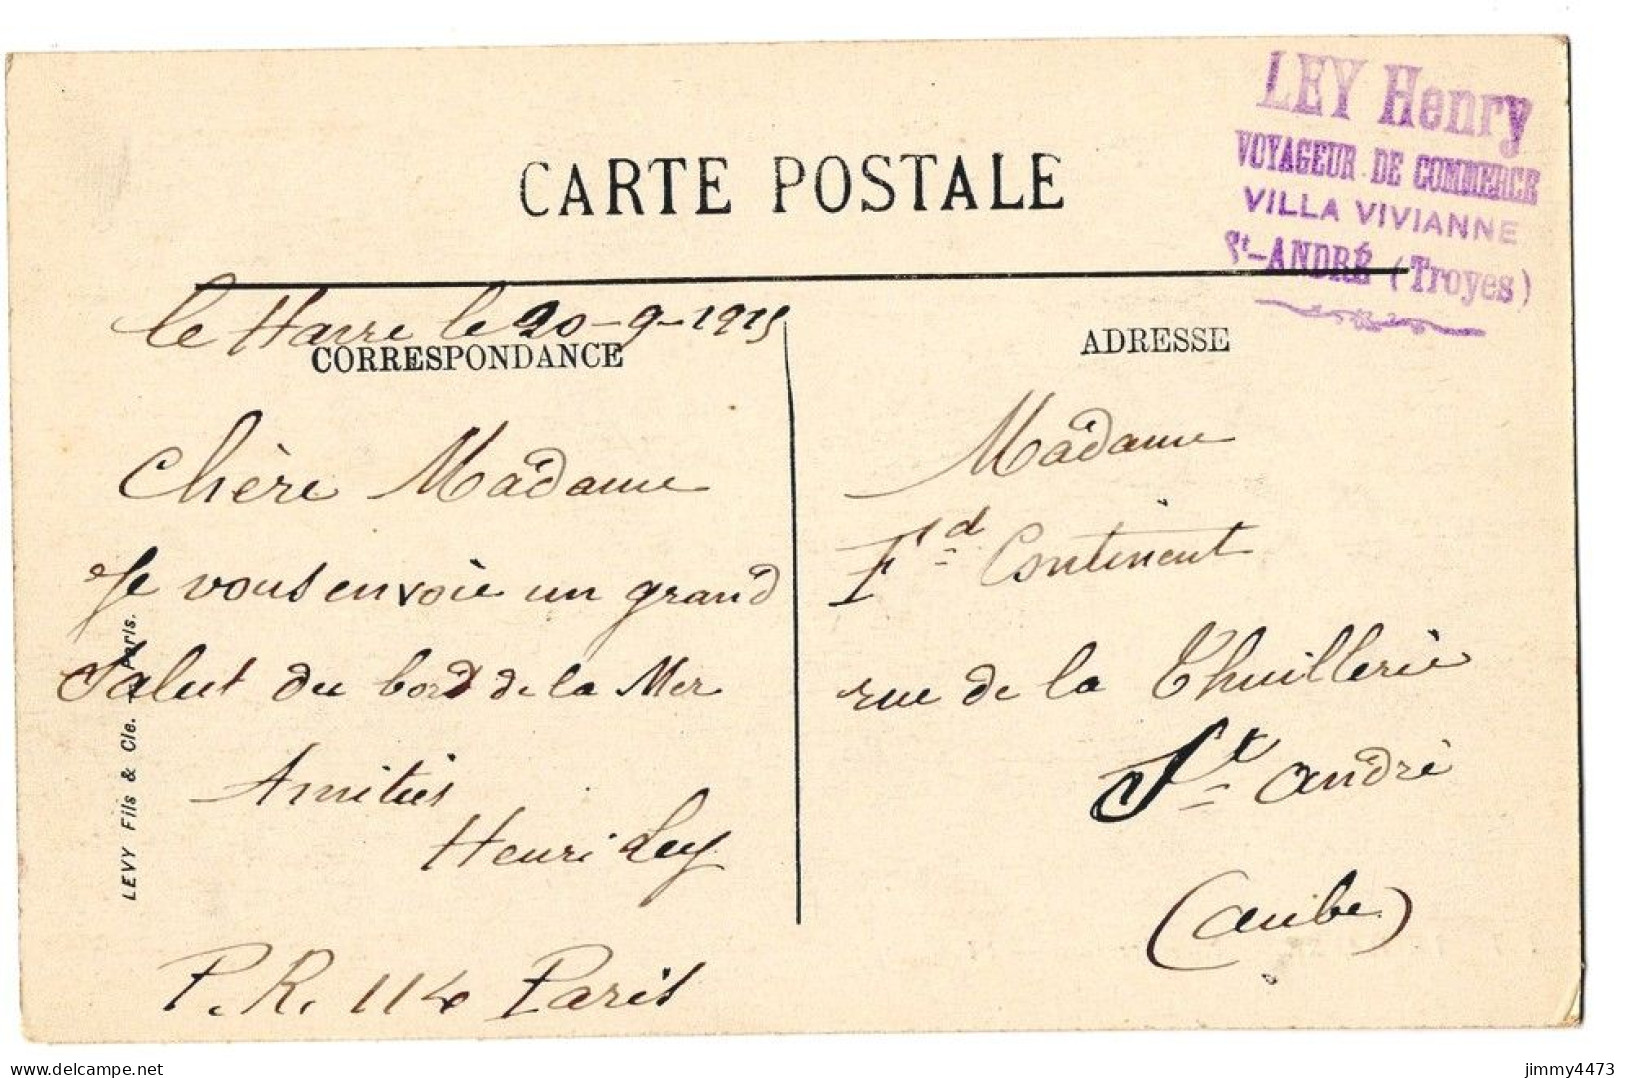 CARTE POSTALE
LEY Henry
VOYAGEUR DE COMMERCE
VILLA VIVIANNE
St-ANDRÉ (Troyes)
le Havre le 20-9-1915
CORRESPONDANCE
Chère Madame
Je vous envoie un grand
Salut du bord de la Mer
Amitiés
Henri Ley
P.R. 114 Paris
LEVY Fils & Cie. - Paris.
ADRESSE
Madame
Fd Continent
rue de la Thuillerie
St André
(aube)
delcampe.net
jimmy4473